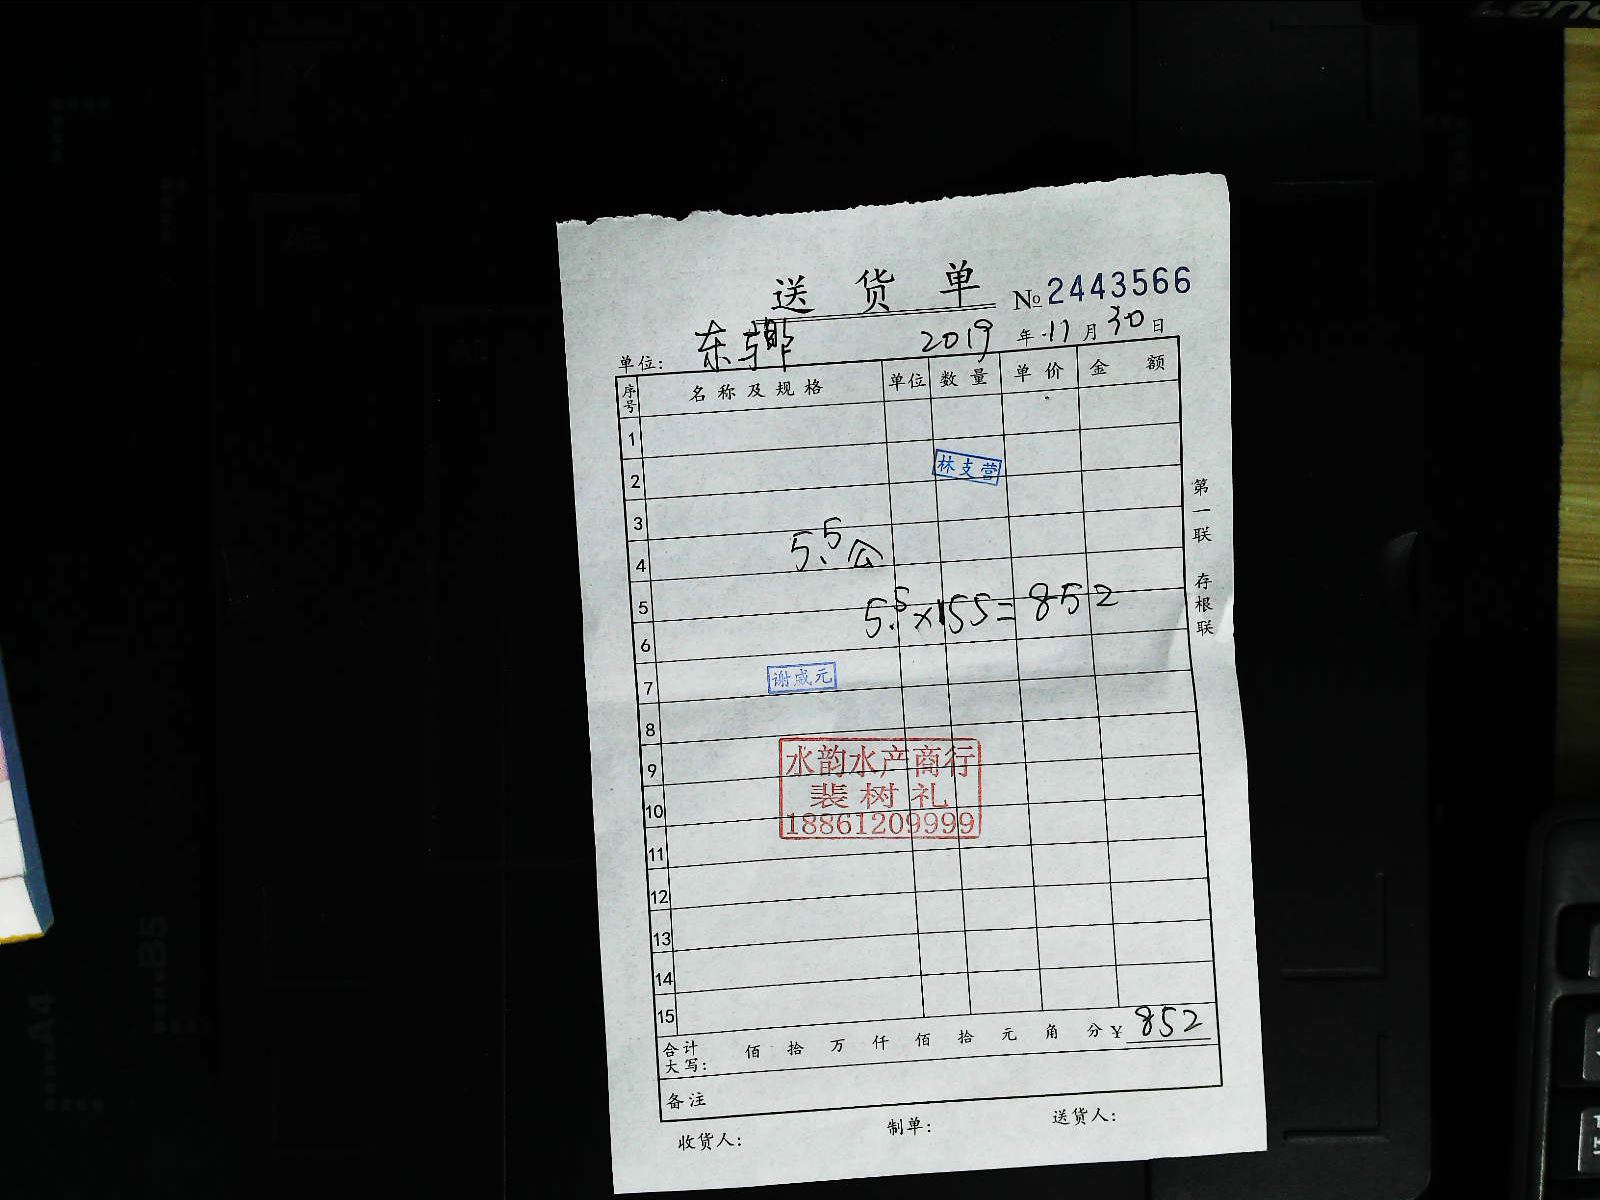 送货单 № 2443566
单位: 东 2019 年 11 月 30 日
序号 名称及规格 单位 数量 单价 金额
1
2 林支营
3
4 5.5公
5 5.5×155=852
6
7 谢威元
8
9 水韵水产商行
10 裴树礼
18861209999
11
12
13
14
15
合计大写: 佰 拾 万 仟 佰 拾 元 角 分 ¥ 852
备注
收货人: 制单: 送货人:
第一联 存根联
Leno
A4
B5